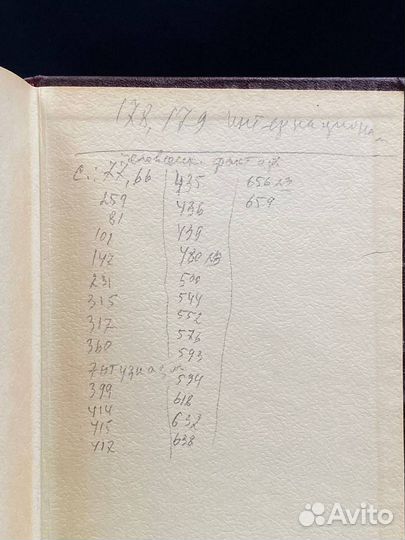 178, 179 интернационал
Человеческ. фактор
с.: 77, 66
259
81
102
142
231
315
317
360
Энтузиазм
399
414
415
417
435
436
439
480
500
544
552
576
593
594
618
632
638
656
659
Avito